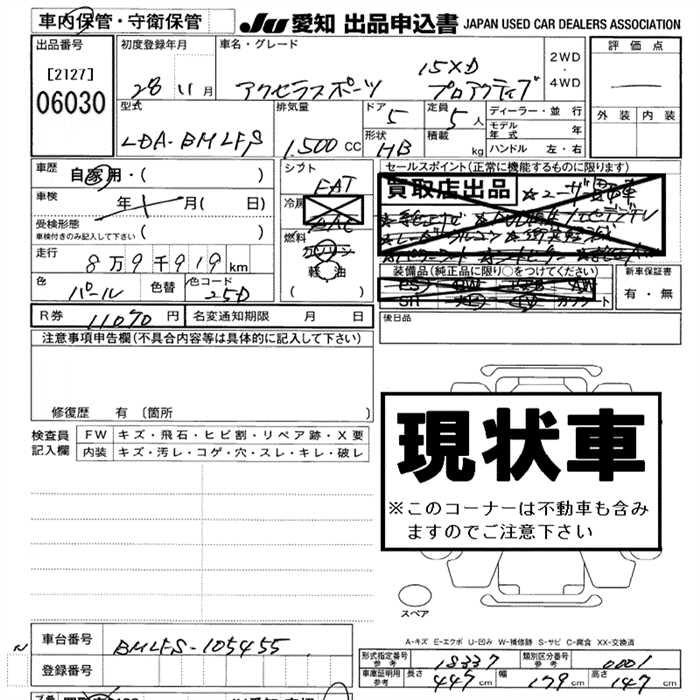 車内保管・守衛保管
JU 愛知 出品申込書 JAPAN USED CAR DEALERS ASSOCIATION
出品番号
[2127]
06030
初度登録年月
28 11月
車名・グレード
15XD
アクセラスポーツ プロアクティブ
2WD
・
4WD
評価点
外装 内装
型式
LDA-BMLFS
排気量
1,500 CC
ドア
5
定員
5人
形状
HB
積載
kg
ディーラー・並行
モデル年式 年
ハンドル 左・右
車歴
自家用・( )
車検
年 月( 日)
受検形態
車検付きのみ記入して下さい ( )
走行
8万9千919km
色
パール
色替
色コード
25D
シフト
FAT
冷房
AAC
燃料
ガソリン
軽油
( )
セールスポイント(正常に機能するものに限ります)
買取店出品
装備品(純正品に限り○をつけてください)
PS PW AW
SR TV カワシート
新車保証書
有・無
R券 11070 円
名変通知期限 月 日
後日品
注意事項申告欄(不具合内容等は具体的に記入して下さい)
修復歴 有〔箇所 〕
検査員記入欄
FW キズ・飛石・ヒビ割・リペア跡・X要
内装 キズ・汚レ・コゲ・穴・スレ・キレ・破レ
現状車
※このコーナーは不動車も含み
ますのでご注意下さい
スペア
A-キズ E-エクボ U-凹み W-補修跡 S-サビ C-腐食 XX-交換済
車台番号 BMLFS-105455
登録番号
形式指定番号 参考 18337
類別区分番号 参考 0001
車庫証明用 参考 長さ 447cm 幅 179cm 高さ 147cm